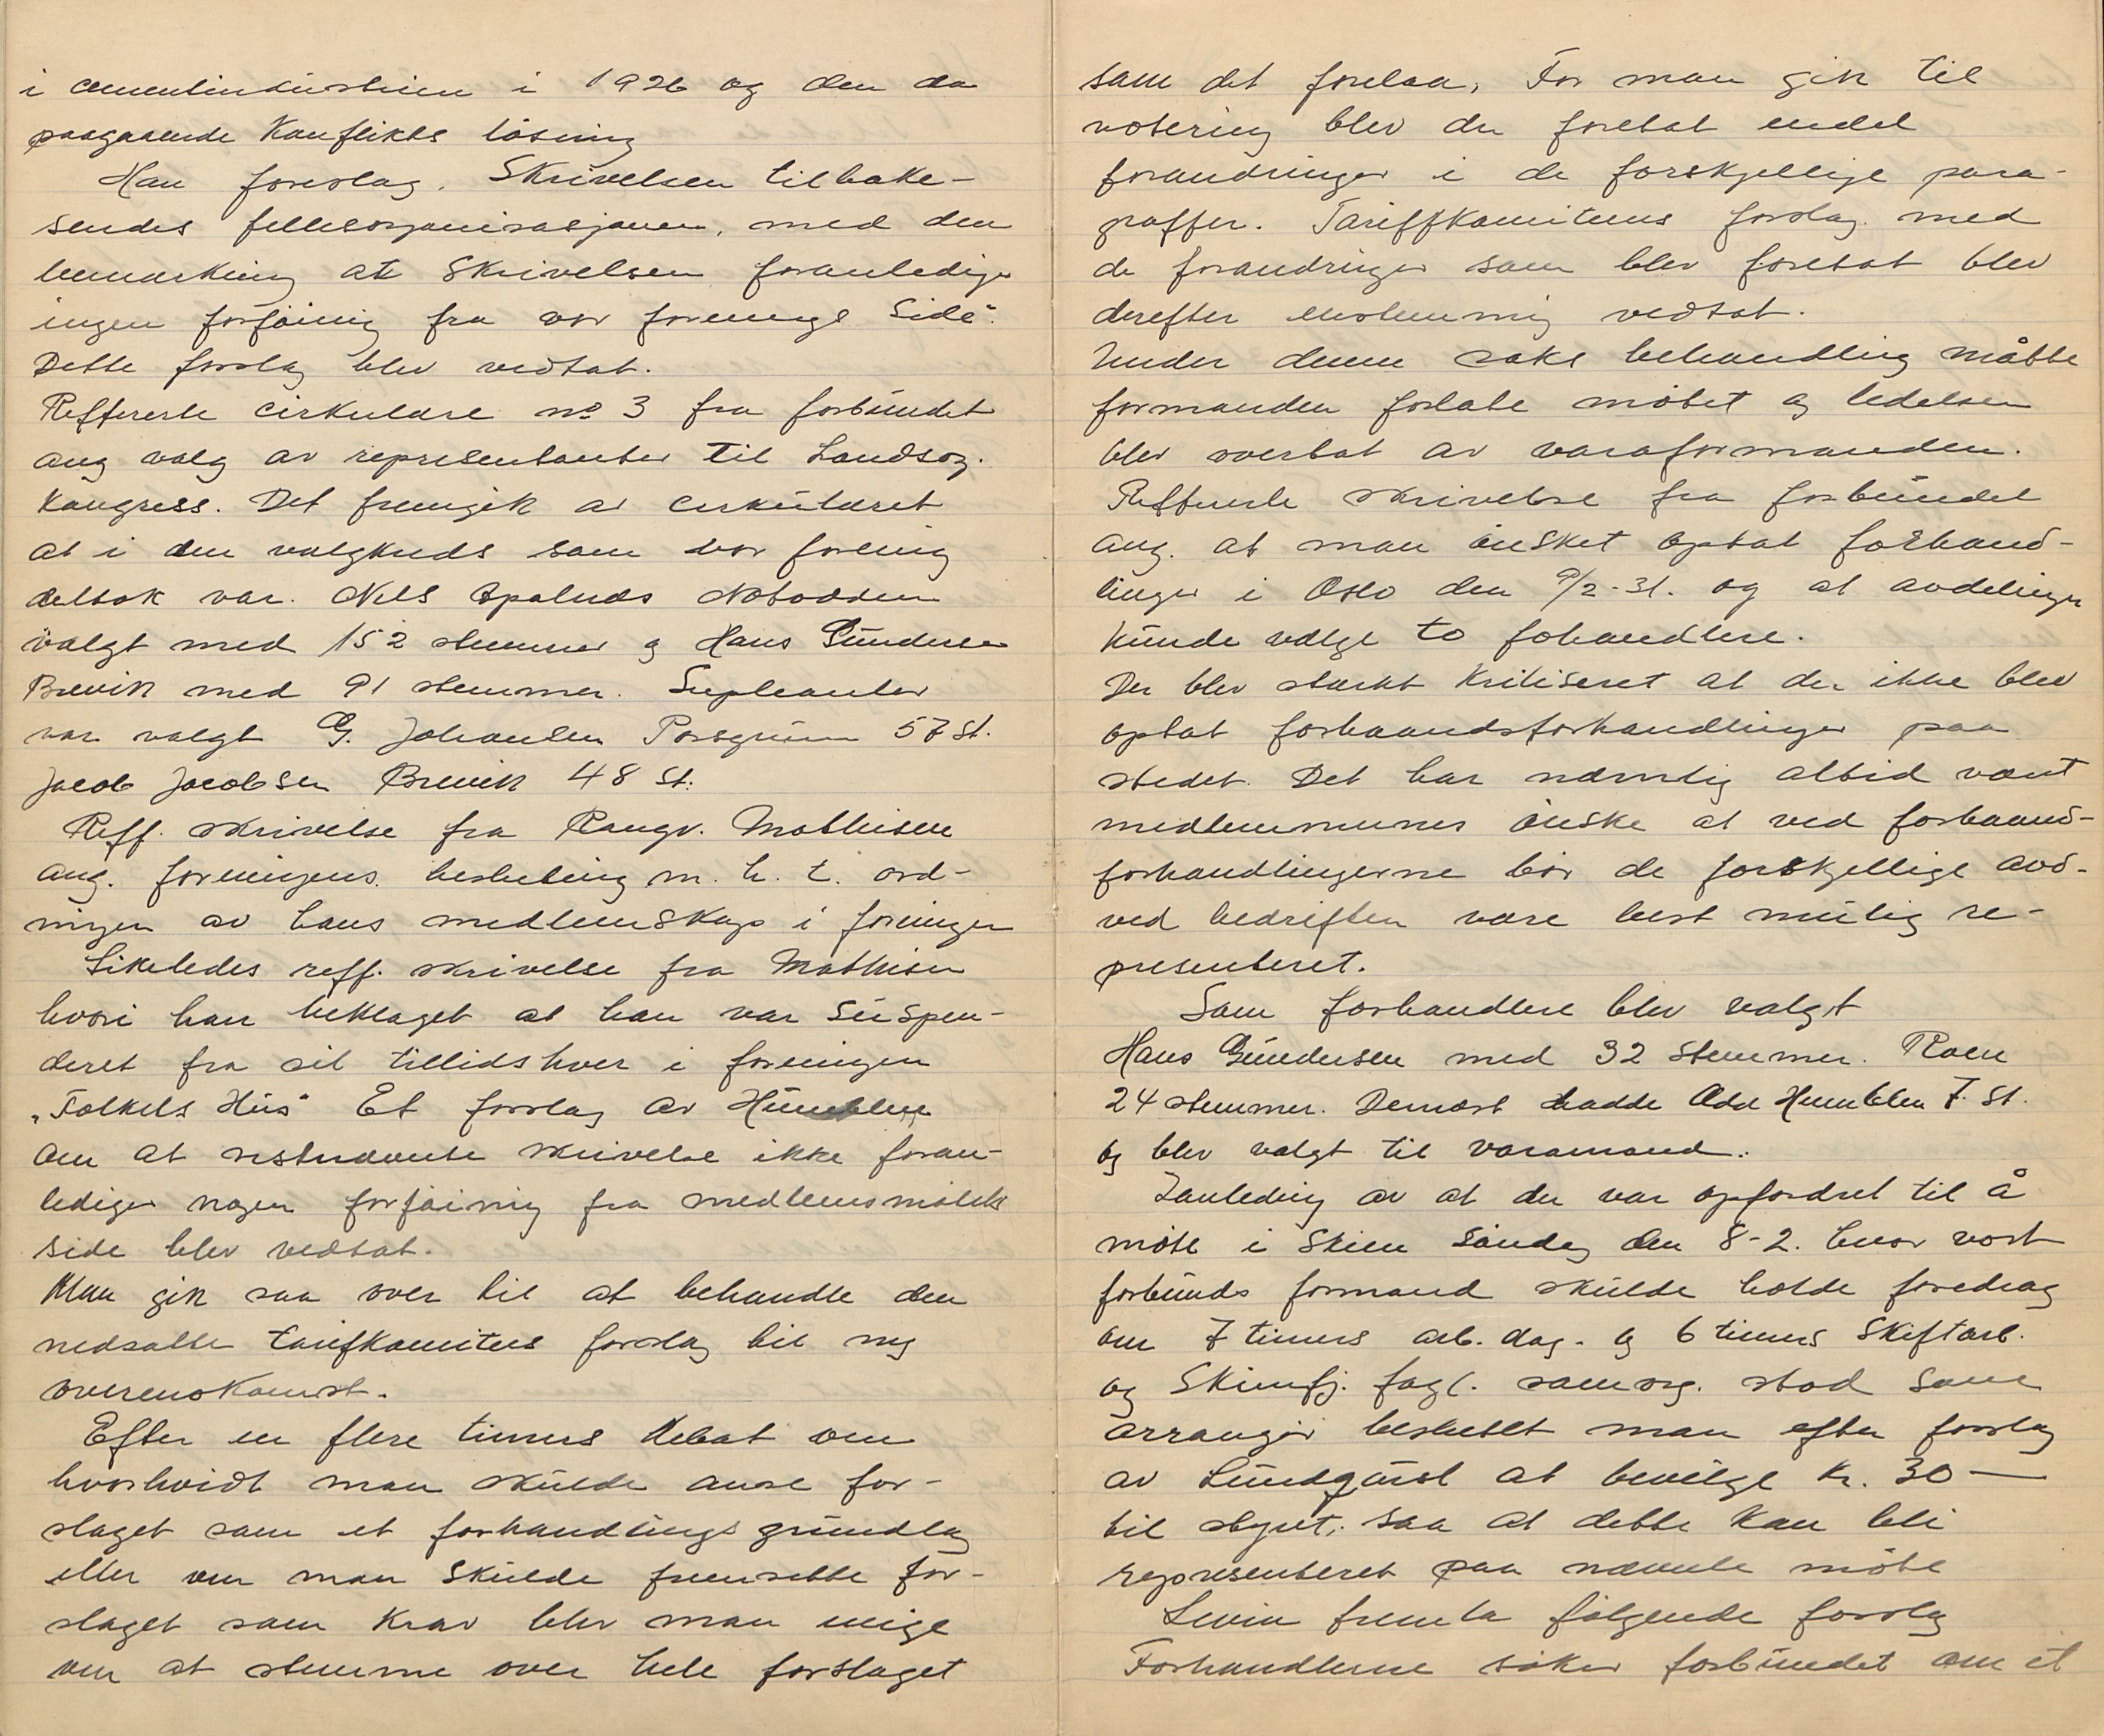 i cementindustrien i 1926 og den da
paagaaende Konflikts løsning
Han foreslag. Skrivelsen tilbake-
sendes fellesorganisasjonen, med den
bemærkning at Skrivelsen foranlediger
ingen forføining fra vor forenings Side".
Dette forslag blev vedtat.
Reffererte cirkulære no 3 fra forbundet
ang valg av representanter til Landsorg.
Kongress. Det fremgik av cirkulæret
at i den valgkreds som vor forening
deltok var. Nils Opalnds Notodden
valgt med 152 stemmer og Hans Gundersen
Brevik med 91 stemmer. Supleanter
var valgt G. Johansen Porsgrunn 57 St.
Jacob Jacobsen Brevik 48 St.
Reff. skrivelse fra Rangv. Mathisen
ang. foreningens beslutning m. h. t. ord-
ningen av hans medlemskap i foreningen
Likeledes reff. skrivelse fra Mathisen
hvori han beklaget at han var Suspen-
deret fra sit tillidshver i foreningen
„Folkets Hus" Et forslag av Humblen
om at skrivelse ikke foran-
lediger nogen forføining fra medlemsmøtets
side blev vedtat.
Man gik saa over til at behandle den
nedsatte tarifkomitees forslag til ny
overenskomst.
Efter en flere timers debat om
hvorhvidt man skulde anse for-
slaget som et forhandlings grundlag
eller om man skulde fremsette for-
slaget som Krav blev man enige
om at stemme over hele forslaget
som det forelaa, Før man gik til
votering blev der foretat endel
forandringer i de forskjellige para-
graffer. Tariffkomiteens forslag med
de forandringer som blev foretat blev
derefter enstemmig vedtat.
Under denne saks behandling måtte
formanden forlate møtet og ledelsen
blev overtat av varaformanden.
Reffererte skrivelse fra forbundet
ang. at man ønsket optat forhand-
linger i Oslo den 9/2-31. og at avdelingen
Kunde vælge to fohandlere.
Der blev stærkt Kritiseret at der ikke blev
optat forhaandsforhandlinger paa
stedet. Det har nemlig altid vært
medlemmenes ønske at ved forhaand-
forhandlingerne bør de forskjellige avd-
ved bedriften være best mulig re-
presenteret.
Som forhandlere blev valgt
Hans Gundersen med 32 Stemmer. Roen
24 stemmer. Dernæst hadde Odd Humblen 7. St.
og blev valgt til varamand.
I anleding av at der var opfordret til å
møte i Skien Søndag den 8-2. hvor vort
forbunds formand skulde holde foredrag
om 7 timers arb. dag. og 6 timers Skiftarb.
og Skiensfj. fagl. samorg. stod som
arrangør besluttet man efter forslag
av Lundqust at bevilge Kr. 30 —
til styret, saa at dette kan bli
representeret paa nævnte møte
Levin fremla følgende forslag
Forhandlerne søker forbundet om et